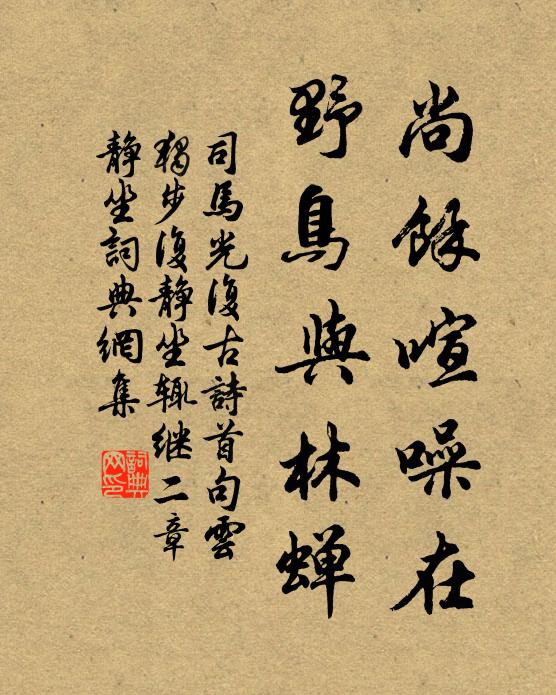 尚餘喧噪在
野鳥與林蝉
司馬光復古詩首句雲
獨步復靜坐輒继二章
靜坐詞典網集
詞典
网印